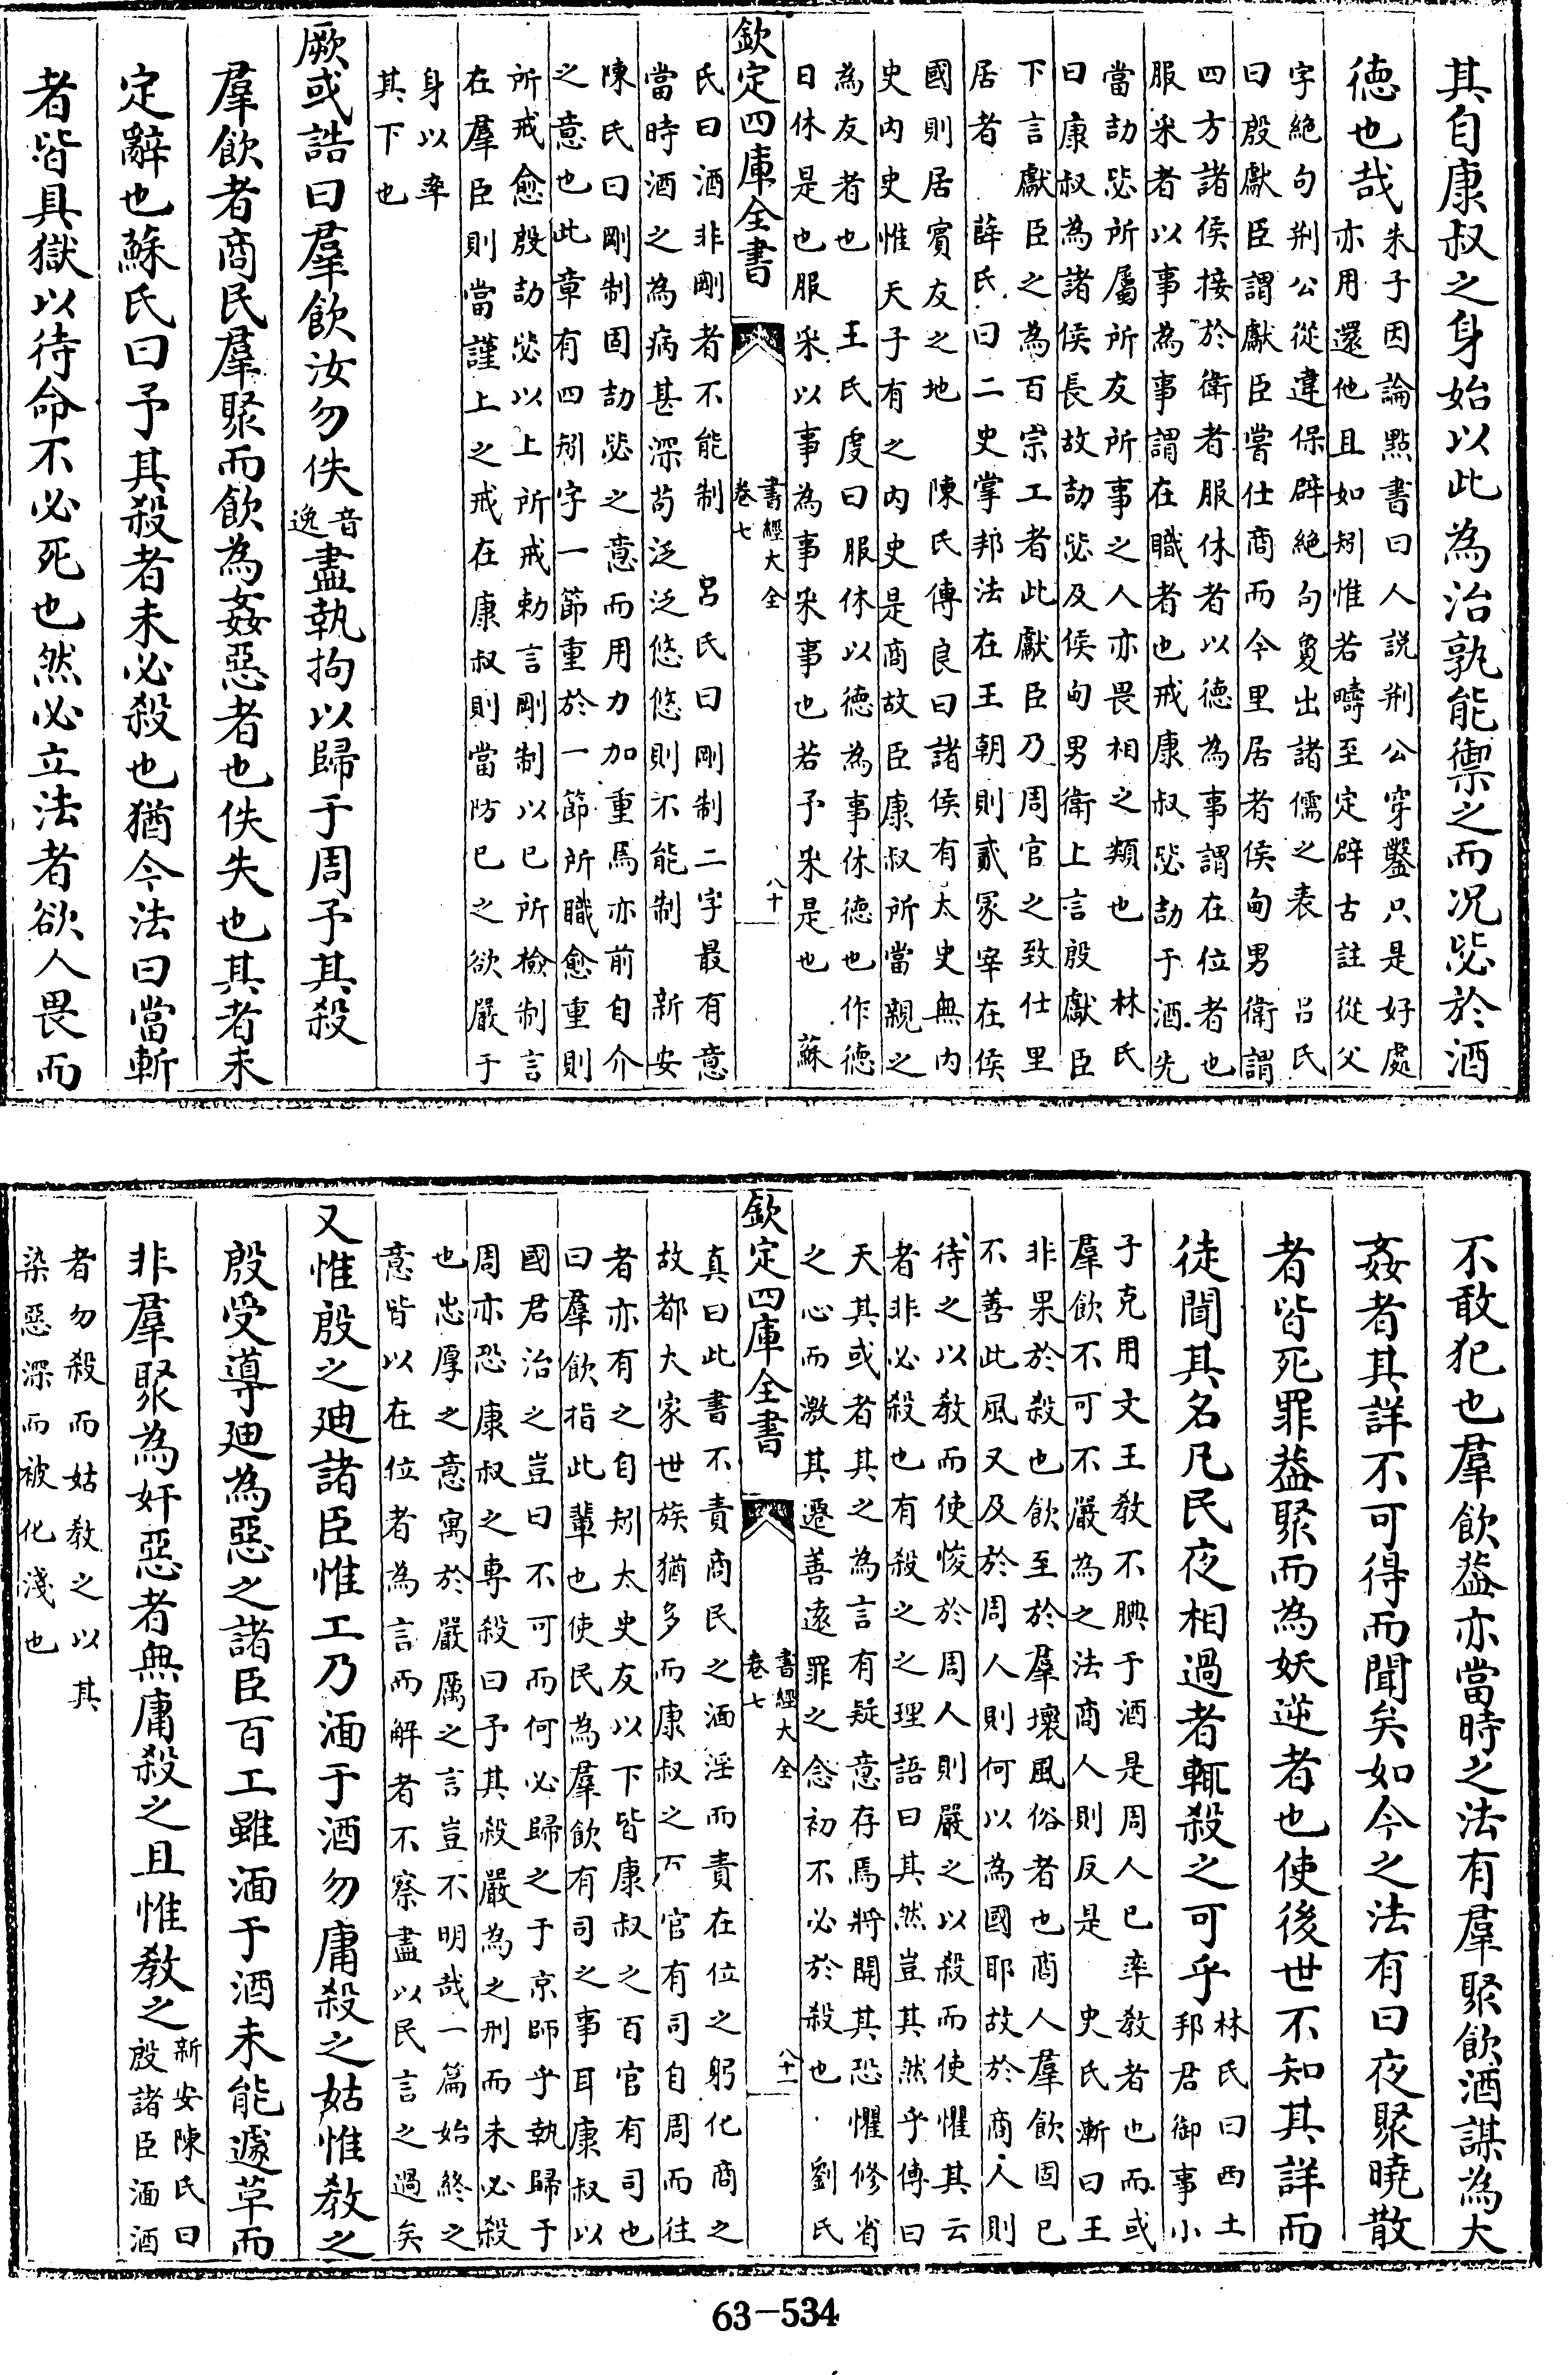 其自康叔之身始以此為治孰能禦之而况毖於酒
德也哉
朱子因論點書曰人説荆公穿鑿只是好處
亦用還他且如矧惟若疇至定辟古註從父
字絶句荆公從違保辟絶句敻出諸儒之表　吕氏
曰殷獻臣謂獻臣嘗仕商而今里居者侯甸男衛謂
四方諸侯接於衛者服休者以德為事謂在位者也
服采者以事為事謂在職者也戒康叔毖劼于酒先
當劼毖所屬所友所事之人亦畏相之類也　林氏
曰康叔為諸侯長故劼毖及侯甸男衛上言殷獻臣
下言獻臣之為百宗工者此獻臣乃周官之致仕里
居者　薛氏曰二史掌邦法在王朝則貳冢宰在侯
國則居賓友之地　陳氏傅良曰諸侯有太史無内
史内史惟天子有之内史是商故臣康叔所當親之
為友者也　王氏虔曰服休以德為事休德也作德
日休是也服采以事為事采事也若予采是也　蘇
欽定四庫全書
書經大全
卷七
八十
氏曰酒非剛者不能制　吕氏曰剛制二字最有意
當時酒之為病甚深苟泛泛悠悠則不能制　新安
陳氏曰剛制固劼毖之意而用力加重焉亦前自介
之意也此章有四矧字一節重於一節所職愈重則
所戒愈殷劼毖以上所戒勅言剛制以已所檢制言
在羣臣則當謹上之戒在康叔則當防已之欲嚴于
身以率
其下也
厥或誥曰羣飲汝勿佚
音
逸
盡執拘以歸于周予其殺
羣飲者商民羣聚而飲為姦惡者也佚失也其者未
定辭也蘇氏曰予其殺者未必殺也猶今法曰當斬
者皆具獄以待命不必死也然必立法者欲人畏而
不敢犯也羣飲葢亦當時之法有羣聚飲酒謀為大
姦者其詳不可得而聞矣如今之法有曰夜聚曉散
者皆死罪葢聚而為妖逆者也使後世不知其詳而
徒聞其名凡民夜相過者輒殺之可乎
林氏曰西土
邦君御事小
子克用文王教不腆于酒是周人已率教者也而或
羣飲不可不嚴為之法商人則反是　史氏漸曰王
非果於殺也飲至於羣壞風俗者也商人羣飲固已
不善此風又及於周人則何以為國耶故於商人則
待之以教而使悛於周人則嚴之以殺而使懼其云
者非必殺也有殺之之理語曰其然豈其然乎傳曰
天其或者其之為言有疑意存焉將開其恐懼修省
之心而激其遷善遠罪之念初不必於殺也　劉氏
欽定四庫全書
書經大全
卷七
八十一
真曰此書不責商民之湎淫而責在位之躬化商之
故都大家世族猶多而康叔之百官有司自周而往
者亦有之自矧太史友以下皆康叔之百官有司也
曰羣飲指此輩也使民為羣飲有司之事耳康叔以
國君治之豈曰不可而何必歸之于京師乎執歸于
周亦恐康叔之專殺曰予其殺嚴為之刑而未必殺
也忠厚之意寓於嚴厲之言豈不明哉一篇始終之
意皆以在位者為言而解者不察盡以民言之過矣
又惟殷之廸諸臣惟工乃湎于酒勿庸殺之姑惟教之
殷受導廸為惡之諸臣百工雖湎于酒未能遽草而
非羣聚為奸惡者無庸殺之且惟教之
新安陳氏曰
殷諸臣湎酒
者勿殺而姑教之以其
染惡深而被化淺也
63-534